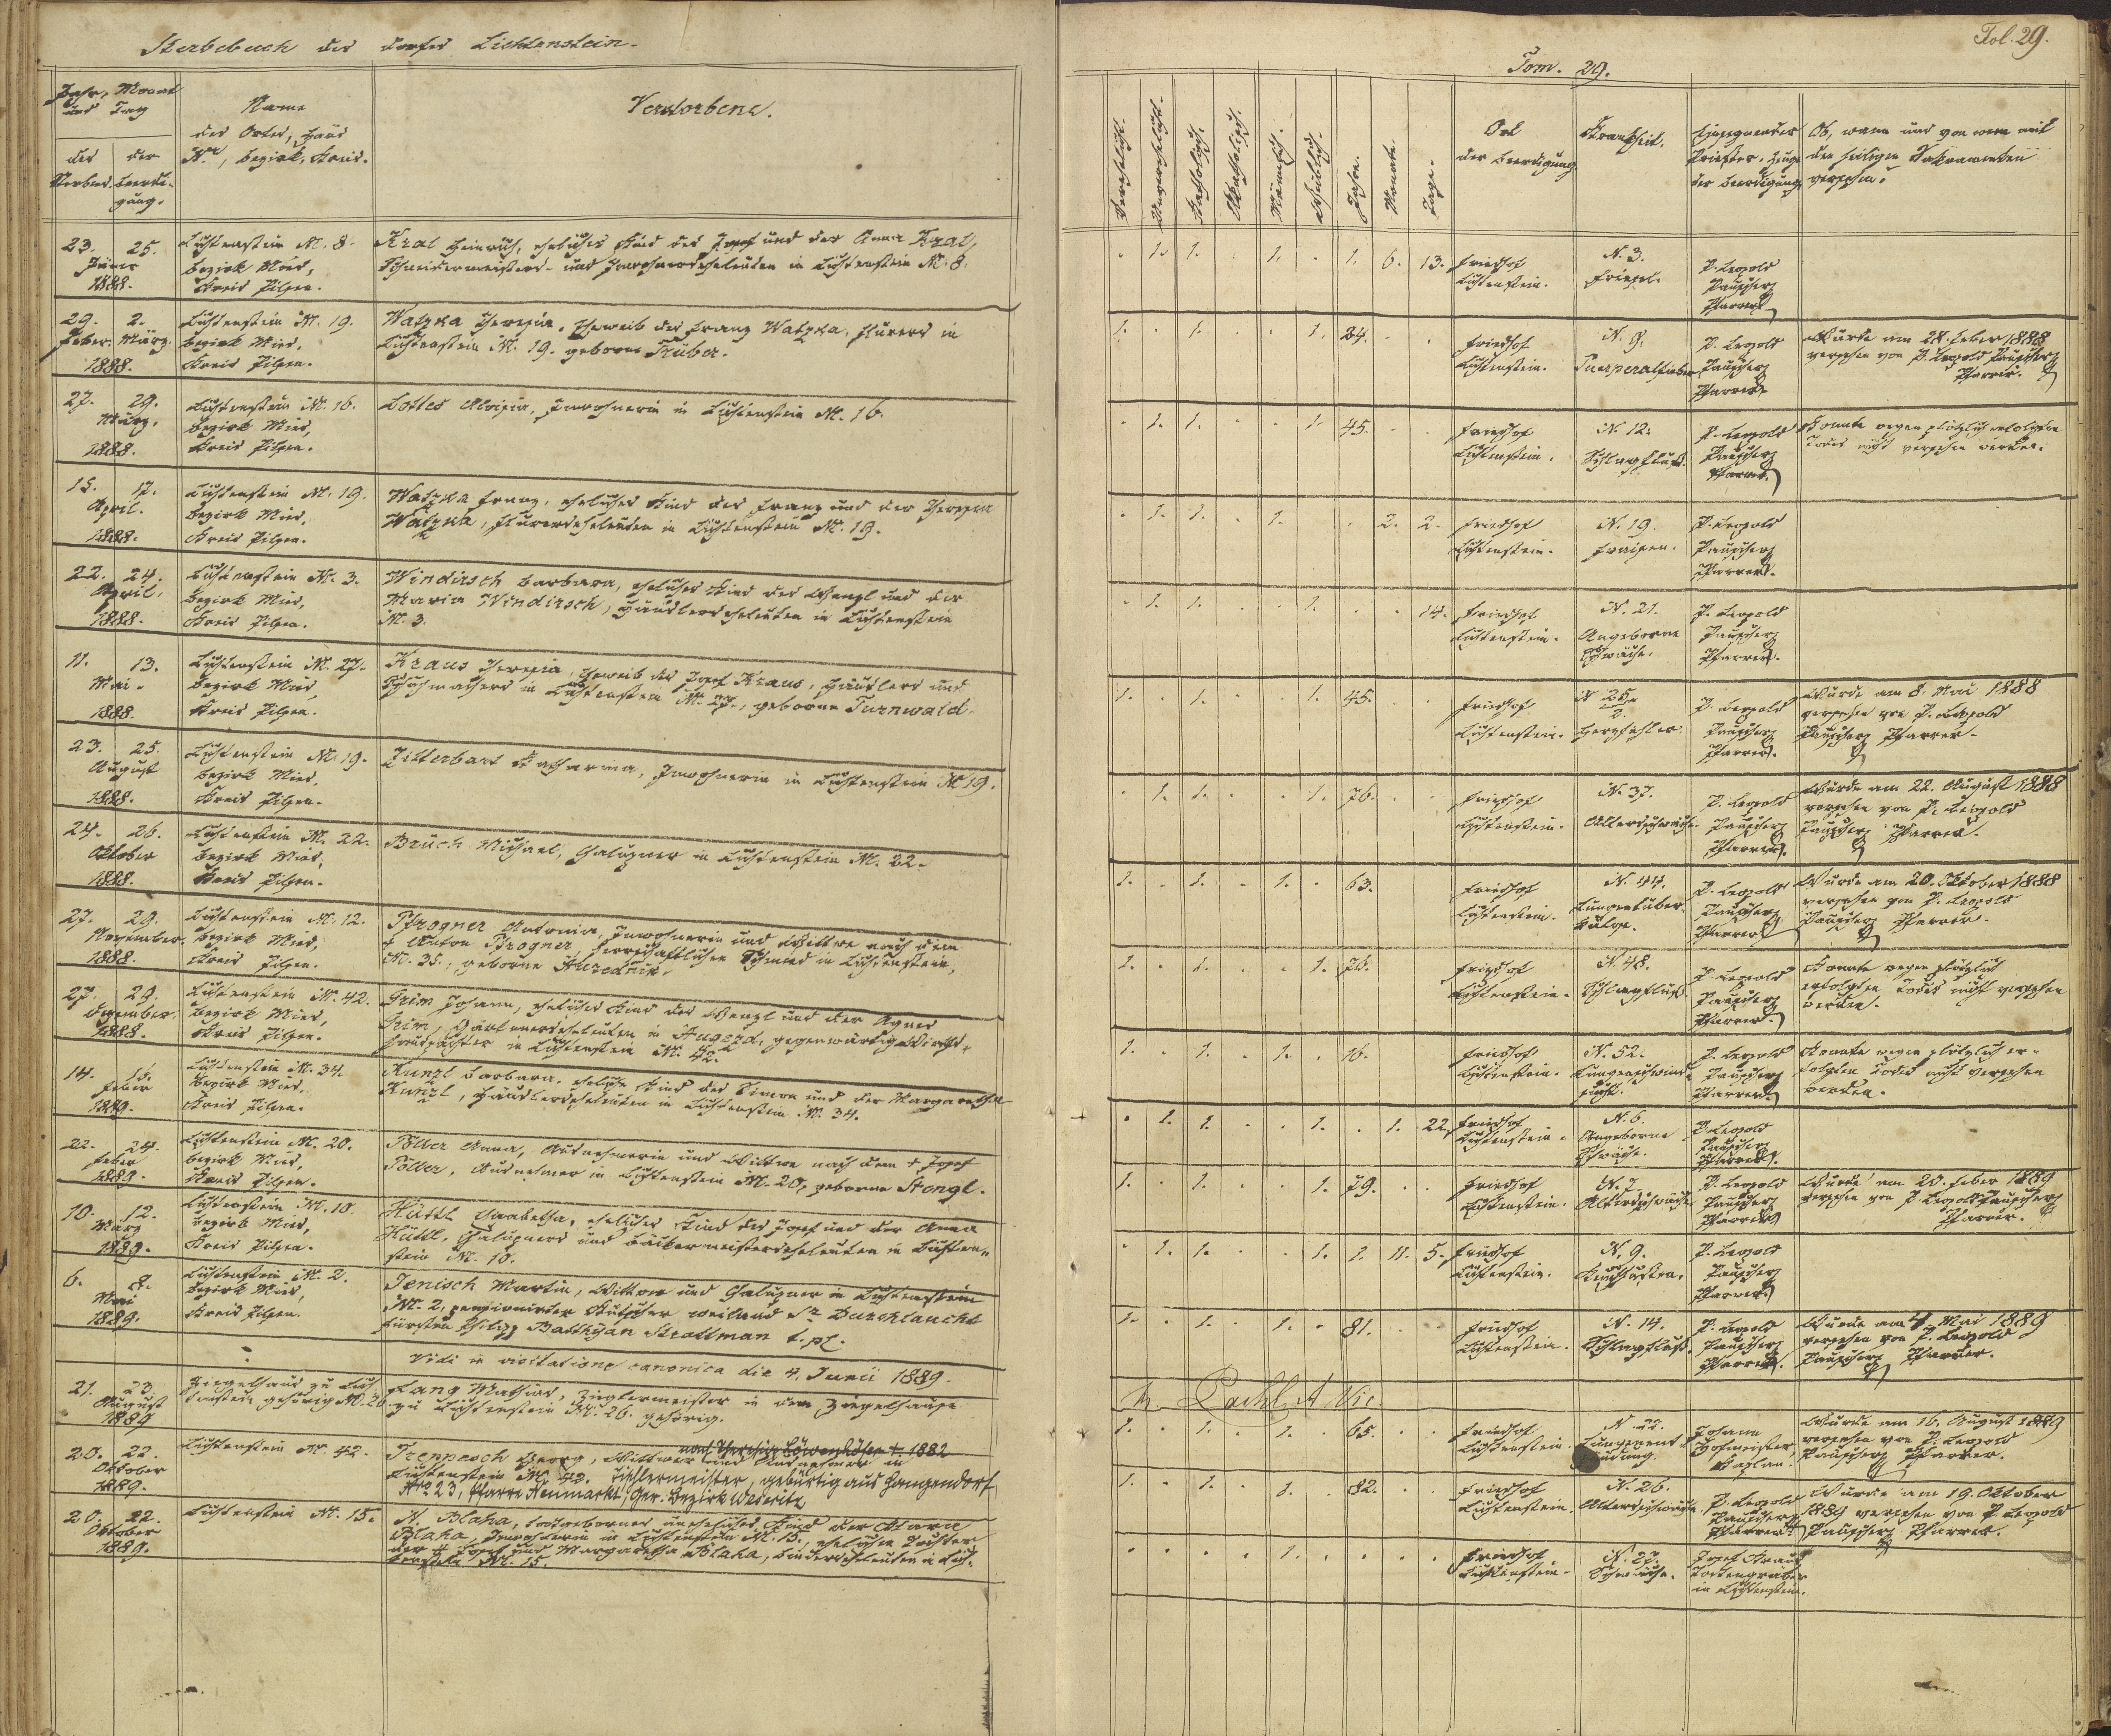 Sterbebuch des Dorfes Lichtenstein.
Jahr, Monat
und Tag
des
Sterbens
der
Beerdi-
gung.
Name
des Ortes, Haus
Nr., Bezirk, Kreis.
Verstorbene.
23. 25.
Jäner
1888.
Lichtenstein N. 8.
Bezirk Mies,
Kreis Pilsen.
Kral Heinrich, eheliches Kind des Josef und der Anna Kral,
Schneidermeisters- und Inwohnerseheleuten in Lichtenstein N. 8.
29. 2.
Feber. März.
1888.
Lichtenstein N. 19.
Bezirk Mies,
Kreis Pilsen.
Watzka Theresia, Eheweib des Franz Watzka, in
Lichtenstein N. 19. geborne Trüber.
27. 29.
März.
1888.
Lichtenstein N. 16.
Bezirk Mies,
Kreis Pilsen.
Lottes Aloisia, Inwohnerin in Lichtenstein N. 16.
15. 17.
April.
1888.
Lichtenstein N. 19.
Bezirk Mies,
Kreis Pilsen.
Watzka Franz, eheliches Kind des Franz und der Theresia
Watzka, in Lichtenstein N. 19.
22. 24.
April.
1888.
Lichtenstein N. 3.
Bezirk Mies,
Kreis Pilsen.
Windirsch Barbara, eheliches Kind des Wenzl und der
Maria Windirsch, Häuslerseheleuten in Lichtenstein
N. 3.
11. 13.
Mai.
1888.
Lichtenstein N. 27.
Bezirk Mies,
Kreis Pilsen.
Kraus Theresia, Eheweib des Josef Kraus, Häuslers und
Schuhmachers in Lichtenstein N. 27., geborne Turnwald.
23. 25.
August
1888.
Lichtenstein N. 19.
Bezirk Mies,
Kreis Pilsen.
Zitterbart Katharina, Inwohnerin in Lichtenstein N 19.
24. 26.
Oktober
1888.
Lichtenstein N. 22.
Bezirk Mies,
Kreis Pilsen.
Bruch Michael, Chalupner in Lichtenstein N. 22.
27. 29.
November.
1888.
Lichtenstein N. 12.
Bezirk Mies,
Kreis Pilsen.
Pfrogner Antonia, Inwohnerin und Wittwe nach dem
† Anton Pfrogner, herrschaftlichen Schmied in Lichtenstein,
N. 35., geborne
27. 29.
Dezember.
1888.
Lichtenstein N. 42.
Bezirk Mies,
Kreis Pilsen.
Grim Johann, eheliches Kind des Wenzl und der Agnes
Grim, Gärtnerseheleuten in Augezd, gegenwärtig Wirths-
hauspächter in Lichtenstein N. 42.
14. 16.
Feber
1889.
Lichtenstein N. 34.
Bezirk Mies,
Kreis Pilsen.
Kunzl Barbara, eheliches Kind des Simon und der Margaretha
Kunzl, Häuslerseheleuten in Lichtenstein N. 34.
22. 24.
Feber
1889.
Lichtenstein N. 20.
Bezirk Mies,
Kreis Pilsen.
Anna, Ausnehmerin und Wittwe nach dem † Josef
Ausnehmer in Lichtenstein N. 20, geborne Stengl.
10. 12.
März
1889.
Lichtenstein N. 10.
Bezirk Mies,
Kreis Pilsen.
Hüttl eheliches Kind des Josef und der Anna
Hüttl, Chalupners und Bäckermeisterseheleuten in Lichten-
stein N. 10.
6. 8.
Mai
1889.
Lichtenstein N. 2.
Bezirk Mies,
Kreis Pilsen.
Jenisch Martin, Wittwer und Chalupner in Lichtenstein
N. 2, pensionirter Kutscher weiland Sr. Durchlaucht
Fürsten Philipp Batthyán Strattman t. pl.
Vidi in visitatione canonica die 4. Junii 1889.
21. 23.
August
1889
Ziegelhaus zu Lich
tenstein gehörig N. 26
Lang Mathias, Zieglermeister in dem Ziegelhause
zu Lichtenstein N. 26. gehörig.
20. 22.
Oktober
1889.
Lichtenstein N. 42.
nach Theresia Löwenhöfer † 1882
Treppesch Georg, Wittwer und Ausnehmer in
Lichtenstein N. 42. Tischlermeister, gebürtig aus Hangendorf
Nro 23, Pfarre Neumarkt, Ger. Bezirk Weseritz
20. 22.
Oktober
1889.
Lichtenstein N. 15.
N. Blaha, todtgebornes uneheliches Kind der Maria
Blaha, Inwohnerin in Lichtenstein N. 15., eheliche Tochter
der † Josef und Margaretha Blaha, in Lich-
tenstein N. 15.
Fol. 29.
Tom. 29.
Verehelicht.
Unverehelicht.
Katholisch.
Akatholisch.
Männlich.
Weiblich.
Jahre.
Monate.
Tage.
Ort
der Beerdigung
Krankheit.
Einsegnender
Priester, Zeuge
der Beerdigung
Ob, wann und von wem mit
den heiligen Sakramenten
versehen?
. 1. 1. . 1. . 1. 6. 13.
Friedhof
Lichtenstein.
N. 3.
Friesel.
P. Leopold
Pauscherz
Pfarrer
1. . 1. . . 1. 24. . .
Friedhof
Lichtenstein.
N. 9.
Puerperalfieber
P. Leopold
Pauscherz
Pfarrer
Wurde am 28. Feber 1888
versehen von P. Leopold Pauscherz
Pfarrer.
. 1. 1. . . 1. 45. . .
Friedhof
Lichtenstein.
N. 12.
Schlagfluß.
P. Leopold
Pauscherz
Pfarrer.
Konnte wegen plötzlich erfolgten
Todes nicht versehen werden.
. 1. 1. . 1. . . 2. 2.
Friedhof
Lichtenstein.
N. 19.
Fraisen.
P. Leopold
Pauscherz
Pfarrer.
. 1. 1. . . 1. . . 14.
Friedhof
Lichtenstein.
N. 21.
Angeborne
Schwäche.
P. Leopold
Pauscherz
Pfarrer.
1. . 1. . . 1. 45. . .
Friedhof
Lichtenstein.
N 25
2.
Herzfehler.
P. Leopold
Pauscherz
Pfarrer.
Wurde am 8. Mai 1888
versehen von P. Leopold
Pauscherz Pfarrer.
. 1. 1. . . 1. 76. . .
Friedhof
Lichtenstein.
N. 37.
Altersschwäche.
P. Leopold
Pauscherz
Pfarrer.
Wurde am 22. August 1888
versehen von P. Leopold
Pauscherz Pfarrer.
1. . 1. . 1. . 63. . .
Friedhof
Lichtenstein.
N. 44.
Lungentuber-
kulose.
P. Leopold
Pauscherz
Pfarrer
Wurde am 20. Oktober 1888
versehen von P. Leopold
Pauscherz Pfarrer.
1. . 1. . . 1. 76. . .
Friedhof
Lichtenstein.
N. 48.
Schlagfluß.
P. Leopold
Pauscherz
Pfarrer.
Konnte wegen plötzlich
erfolgten Todes nicht versehen
werden.
1. . 1. . 1. . 16. . .
Friedhof
Lichtenstein.
N. 52.
Lungenschwind-
sucht.
P. Leopold
Pauscherz
Pfarrer.
Konnte wegen plötzlich er-
folgten Todes nicht versehen
werden.
. 1. 1. . . 1. . 1. 22.
Friedhof
Lichtenstein.
N. 6.
Angeborne
Schwäche.
P. Leopold
Pauscherz
Pfarrer.
1. . 1. . . 1. 79. . .
Friedhof
Lichtenstein.
N. 7.
Altersschwäche
P. Leopold
Pauscherz
Pfarrer
Wurde am 20. Feber 1889
versehen von P. Leopold Pauscherz
Pfarrer.
. 1. 1. . . 1. 1. 11. 5.
Friedhof
Lichtenstein.
N. 9.
P. Leopold
Pauscherz
Pfarrer.
1. . 1. . 1. . 81. . .
Friedhof
Lichtenstein.
N. 14.
Schlagfluß.
P. Leopold
Pauscherz
Pfarrer.
Wurde am 4. Mai 1889
versehen von P. Leopold
Pauscherz Pfarrer.
Vic.
1. . 1. . 1. . 65. . .
Friedhof
Lichtenstein.
N. 22.
Lungenent-
zündung.
Johann
Hofmeister,
Kaplan.
Wurde am 16. August 1889
versehen von P. Leopold
Pauscherz Pfarrer.
1. . 1. . 1. . 82. . .
Friedhof
Lichtenstein.
N. 26.
Altersschwäche
P. Leopold
Pauscherz
Pfarrer
Wurde am 19. Oktober
1889 versehen von P. Leopold
Pauscherz Pfarrer.
. . . . 1. . . . .
Friedhof
Lichtenstein.
N. 27.
Schwäche.
Josef Kraus
Todtengräber
in Lichtenstein.